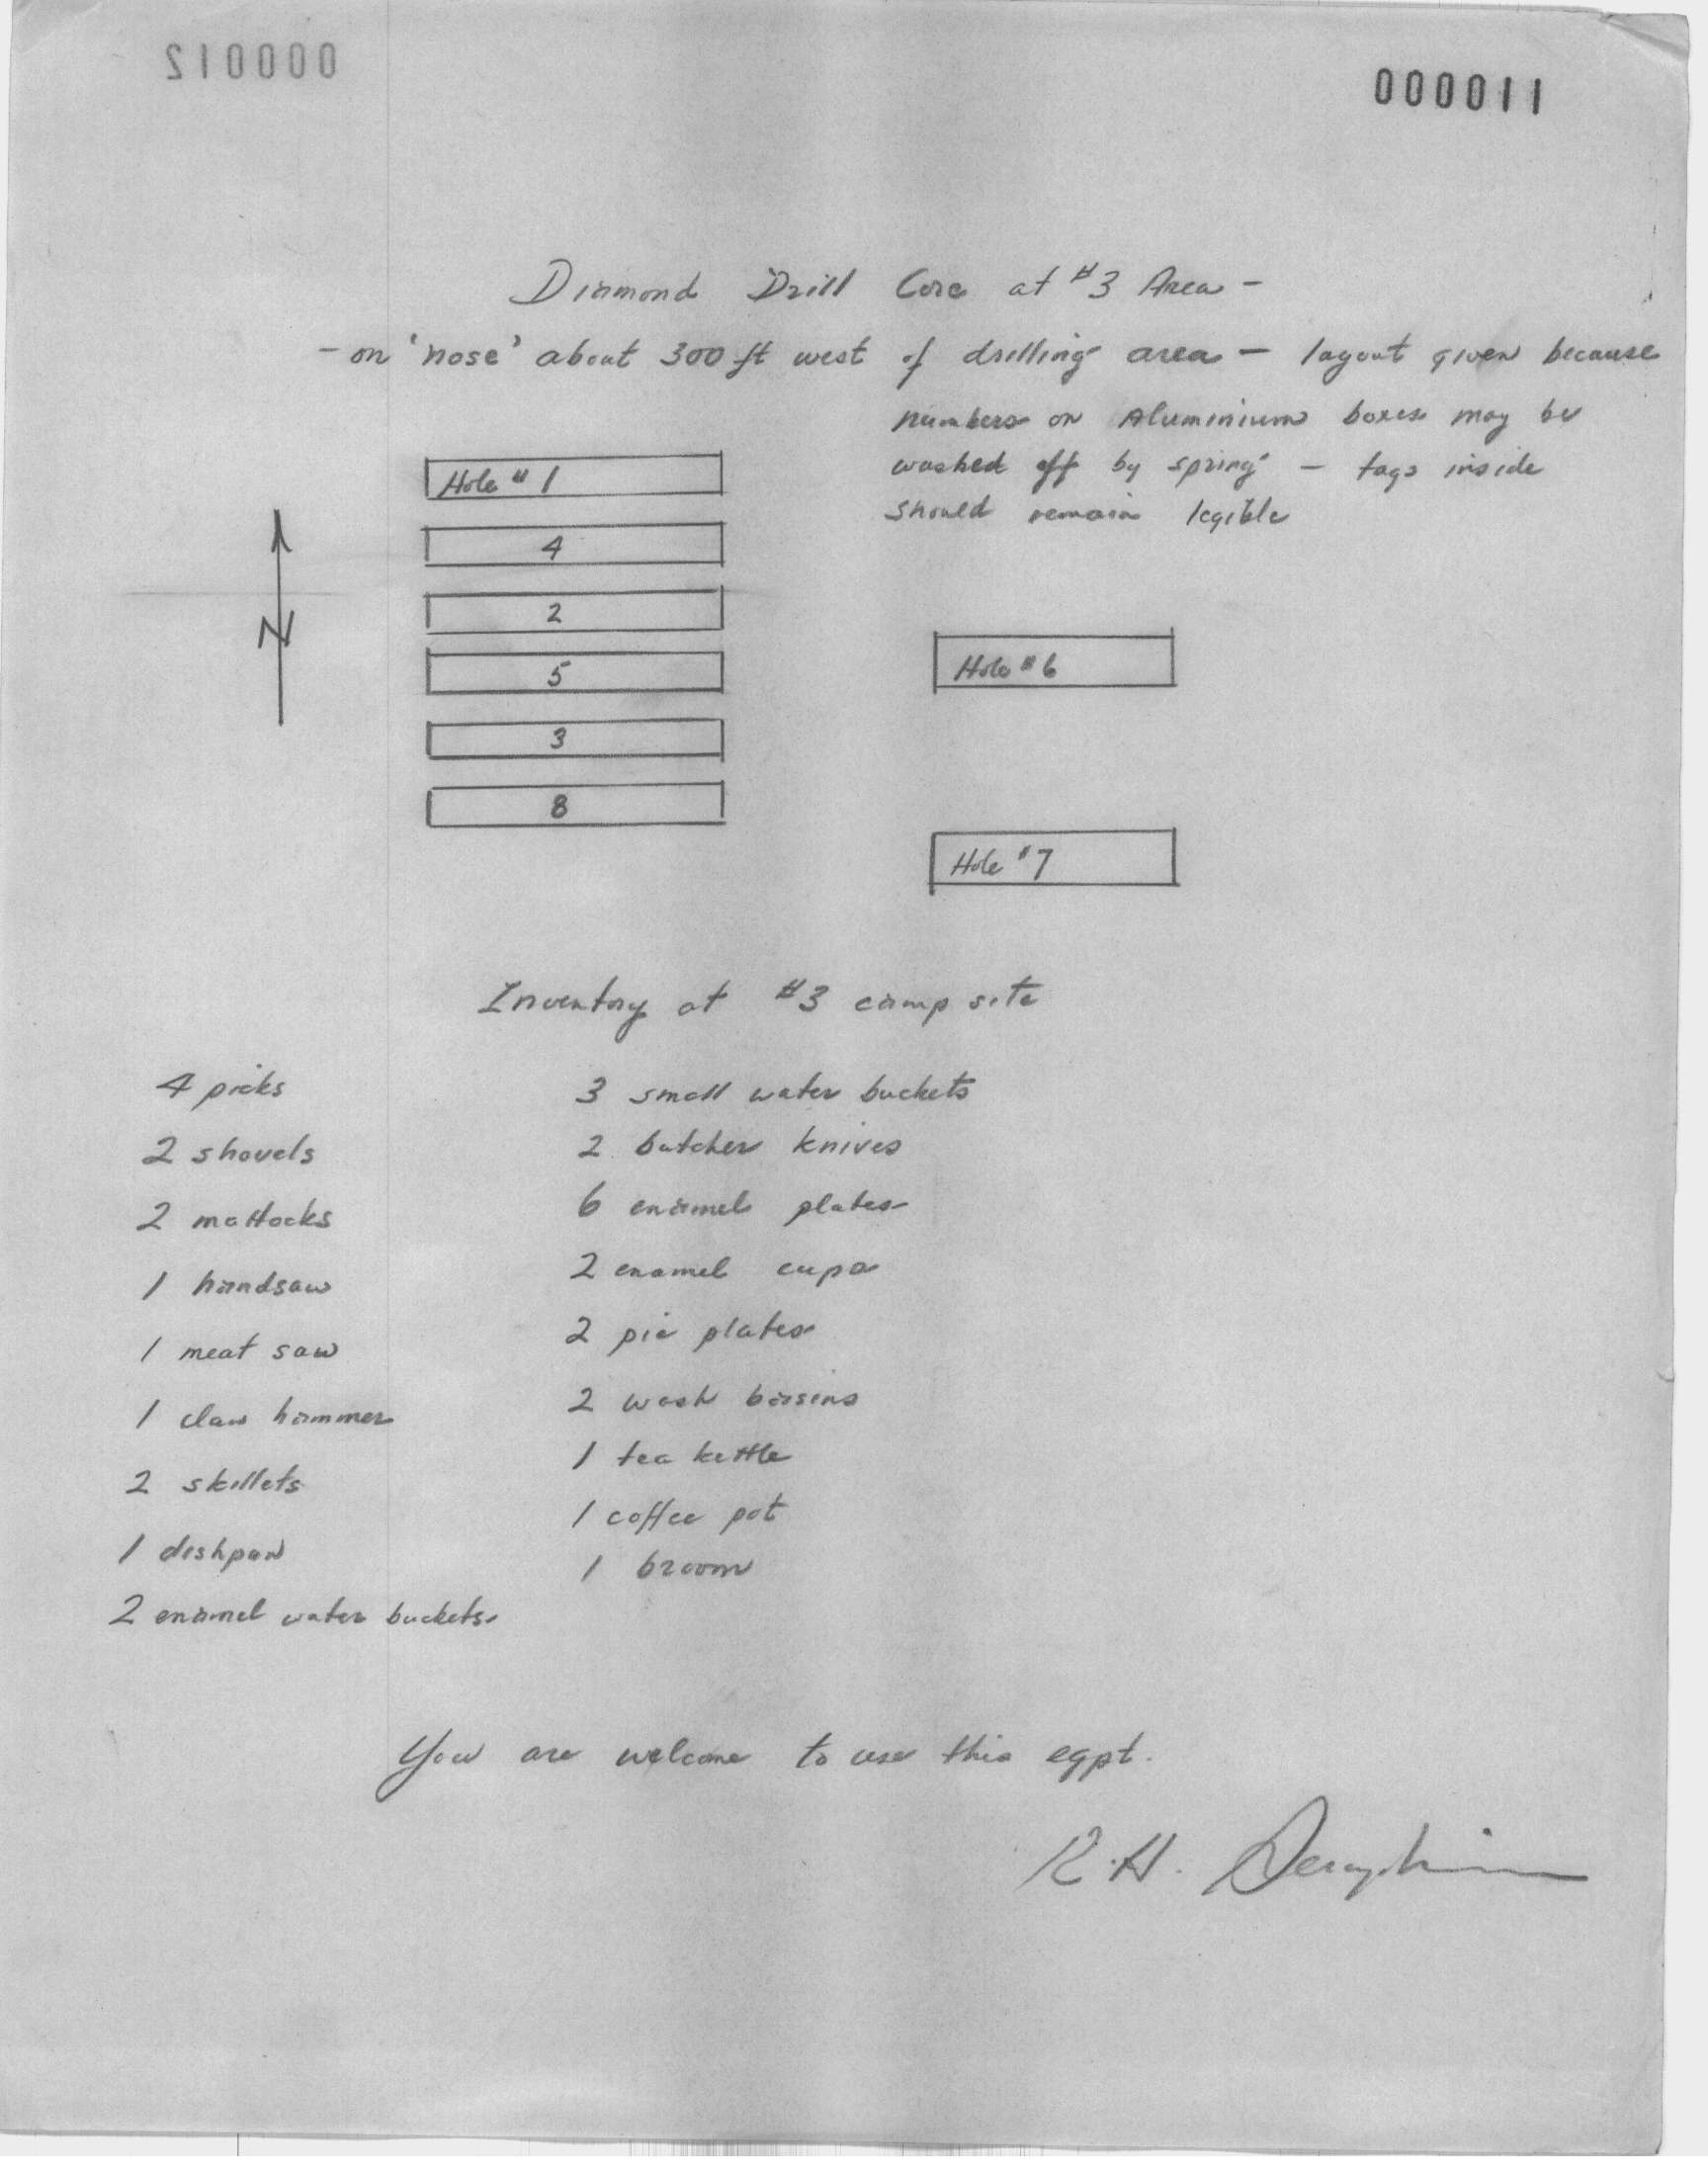 000012
000011
Diamond Drill Core at #3 Area -
- on 'nose' about 300 ft west of drilling area - layout given because
numbers on Aluminium boxes may be
washed off by spring - tags inside
should remain legible
Hole #1
4
2
5
3
8
N
Hole #6
Hole #7
Inventory at #3 camp site
4 picks
2 shovels
2 mattocks
1 handsaw
1 meat saw
1 claw hammer
2 skillets
1 dishpan
2 enamel water buckets
3 small water buckets
2 butcher knives
6 enamel plates
2 enamel cups
2 pie plates
2 wash basins
1 tea kettle
1 coffee pot
1 broom
You are welcome to use this eqpt.
R.H. Seraphim